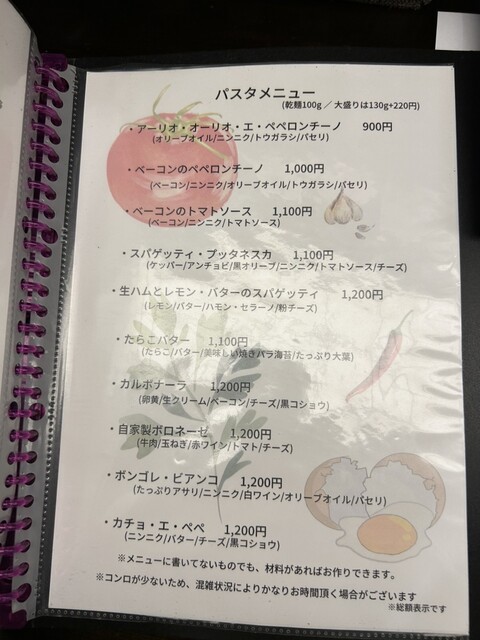 パスタメニュー
(乾麺100g ／ 大盛りは130g+220円)
・アーリオ・オーリオ・エ・ペペロンチーノ 900円
(オリーブオイル/ニンニク/トウガラシ/パセリ)
・ベーコンのペペロンチーノ 1,000円
(ベーコン/ニンニク/オリーブオイル/トウガラシ/パセリ)
・ベーコンのトマトソース 1,100円
(ベーコン/ニンニク/トマトソース)
・スパゲッティ・プッタネスカ 1,100円
(ケッパー/アンチョビ/黒オリーブ/ニンニク/トマトソース/チーズ)
・生ハムとレモン・バターのスパゲッティ 1,200円
(レモン/バター/ハモン・セラーノ/粉チーズ)
・たらこバター 1,100円
(たらこ/バター/美味しい焼きバラ海苔/たっぷり大葉)
・カルボナーラ 1,200円
(卵黄/生クリーム/ベーコン/チーズ/黒コショウ)
・自家製ボロネーゼ 1,200円
(牛肉/玉ねぎ/赤ワイン/トマト/チーズ)
・ボンゴレ・ビアンコ 1,200円
(たっぷりアサリ/ニンニク/白ワイン/オリーブオイル/パセリ)
・カチョ・エ・ペペ 1,200円
(ニンニク/バター/チーズ/黒コショウ)
※メニューに書いてないものでも、材料があればお作りできます。
※コンロが少ないため、混雑状況によりかなりお時間頂く場合がございます
※総額表示です